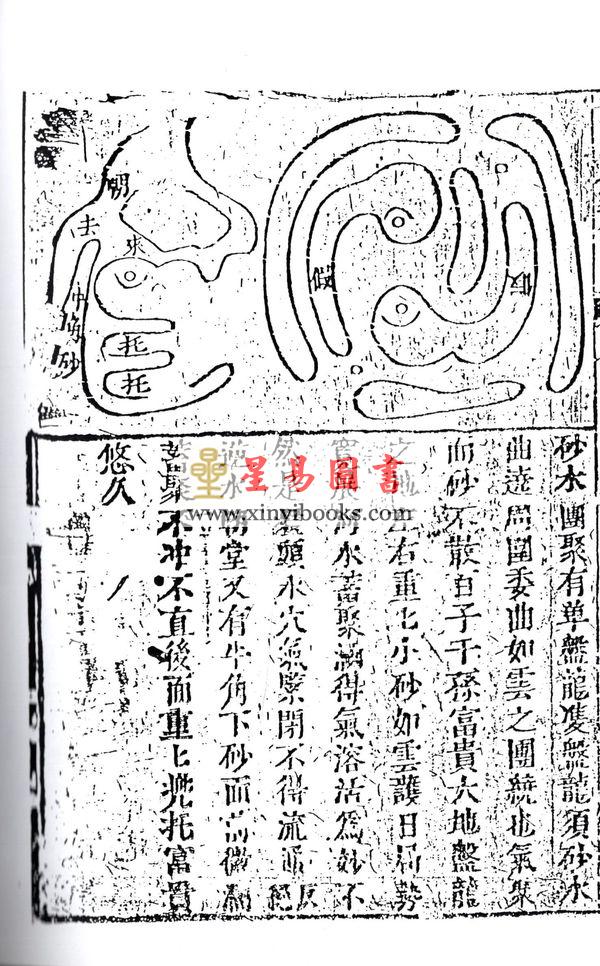 假
假
朝
去
來
托
托
角砂
砂水團聚有单盤龍隻盤龍須砂水
曲遶周圍委曲如雲之團繞也氣聚
而砂不散百子千孫富貴大地盤龍
之地左右重七小砂如雲護日局勢
水蓄聚涵得氣溶活爲妙不
然是頭水穴氣緊閉不得流通反絕
水朝堂又有牛角下砂而前微
蓄聚不冲不直後面重七兠托富貴
悠久
星易圖書
www.xinyibooks.com